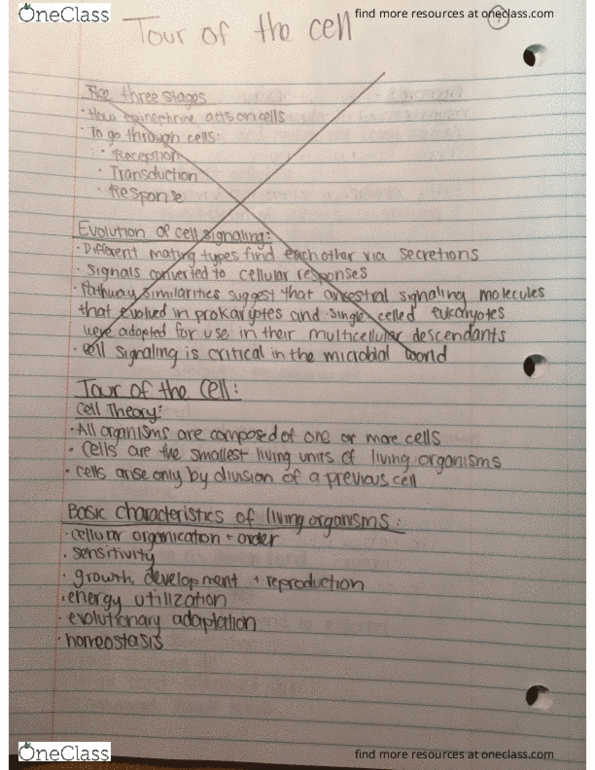 OneClass
find more resources at oneclass.com
Tour of the cell
1
The three stages
· How epinephrine acts on cells
· To go through cells:
· Reception
· Transduction
· Response
Evolution of cell signaling:
· Different mating types find each other via secretions
· Signals converted to cellular responses
· Pathway similarities suggest that ancestral signaling molecules
that evolved in prokaryotes and single-celled eukaryotes
were adopted for use in their multicellular descendants
· Cell signaling is critical in the microbial world
Tour of the Cell:
Cell Theory:
· All organisms are composed of one or more cells
· Cells are the smallest living units of living organisms
· Cells arise only by division of a previous cell
Basic characteristics of living organisms:
· cellular organication + order
· sensitivity
· growth, development + reproduction
· energy utilization
· evolutionary adaptation
· homeostasis
OneClass
find more resources at oneclass.com